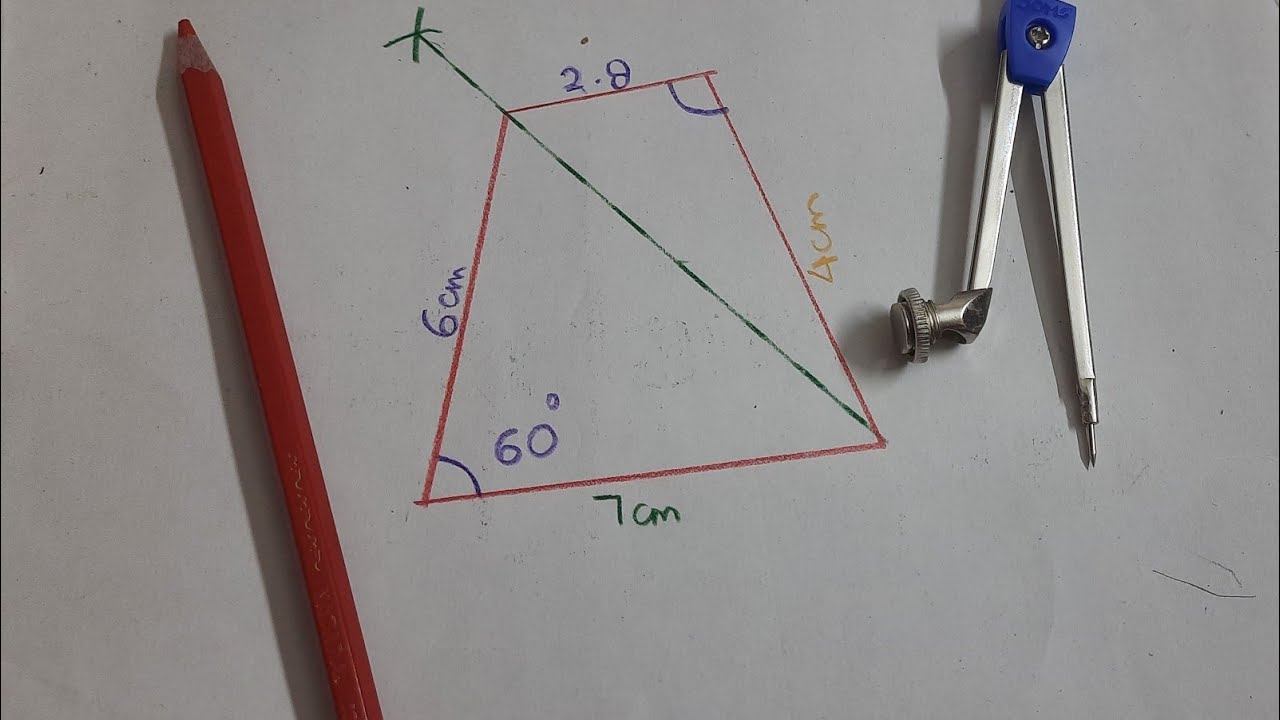 2.8
6cm
4cm
60°
7cm